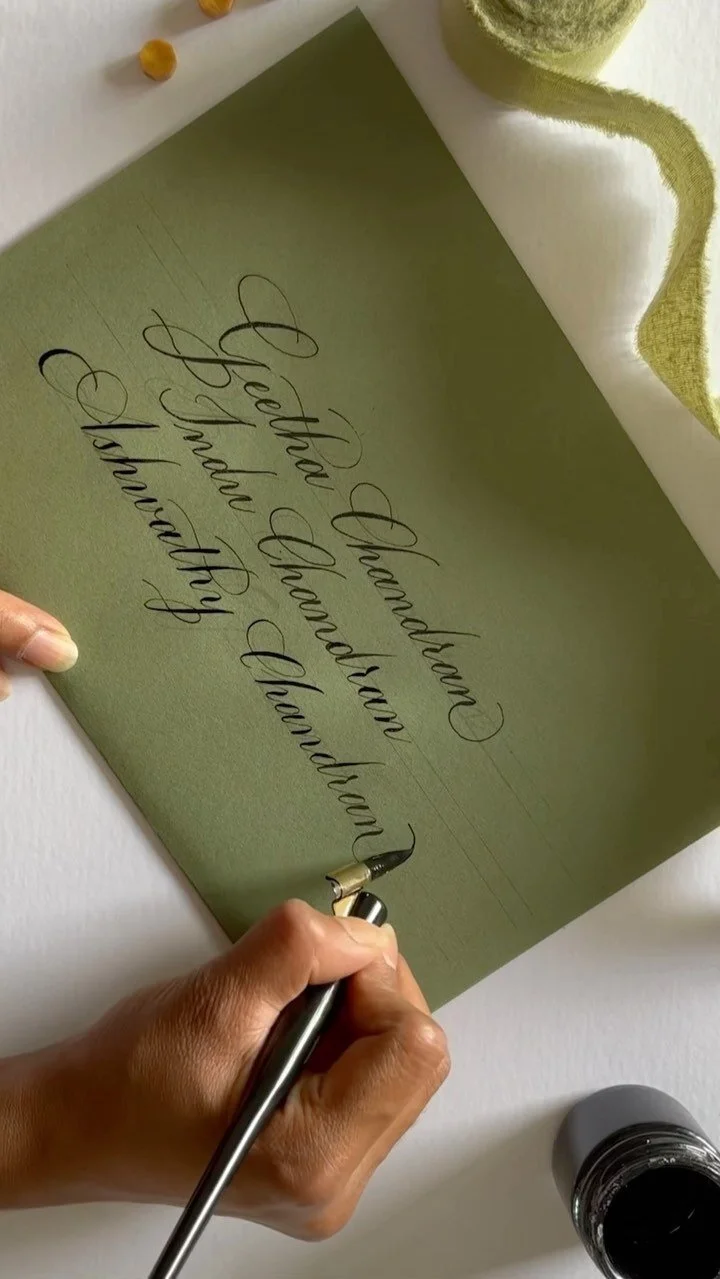 Geetha Chandran
Indu Chandran
Ashwathy Chandran